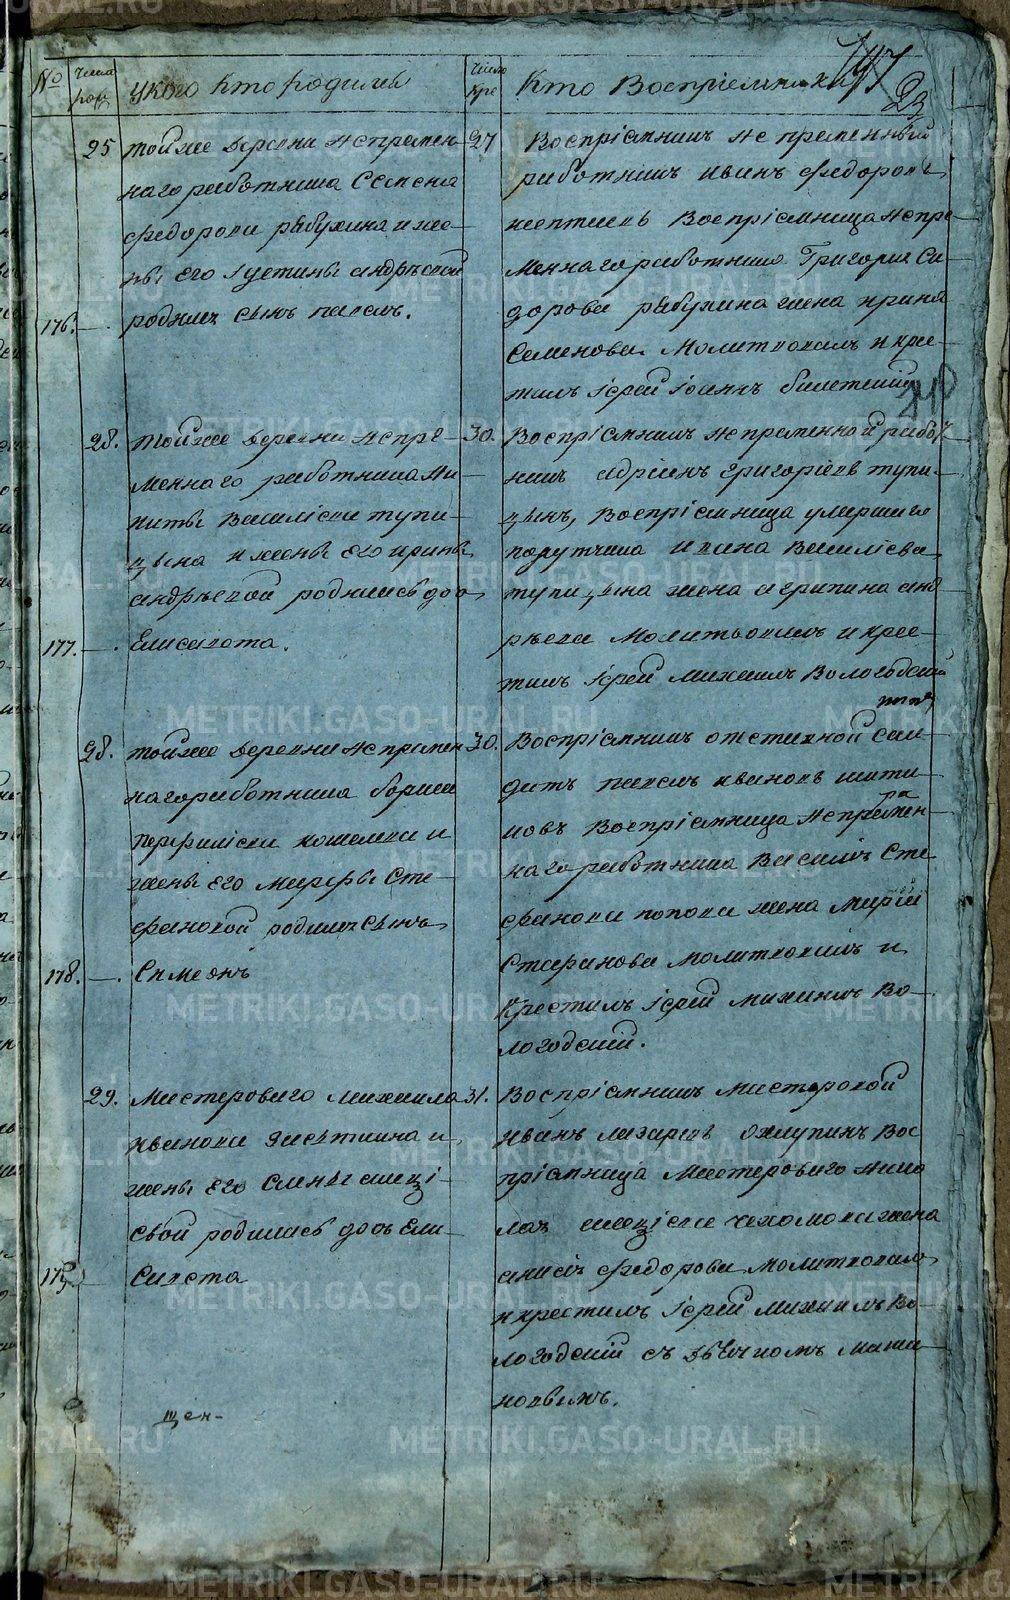 №
Числа рож
У кого кто родился
Число кре
Кто Воспріемники
197
23
25
тойже деревни непремен-
наго работника Семена
федорова рябухина и же-
ны Его Іустины андрѣевой
176.
родился сынъ павелъ.
27
Воспріемникъ непременный
работникъ иванъ федоровъ
Воспріемница непре-
меннаго работника Григорія Си-
дорова рябухина жена ирина
Семенова Молитвовалъ и кре-
тилъ Іерей Іоаннъ
28.
тойже деревни непре-
меннаго работника Ни-
киты Василіева тупи-
цына и жены Его ирины
андрѣевой родилась дочь
177.
Елисавета.
30.
Воспріемникъ непременной рабо-
никъ адріанъ григоріевъ тупи-
цынъ, Воспріемница умершаго
порутчика ивана Василіева
тупицына жена агрипина анд-
рѣева Молитвовалъ и крес-
тилъ Іерей михаилъ Вологодский
28.
тойже деревни непремен
наго работника бориса
перфиліева кошелева и
жены Его марфы Сте-
фановой родился сынъ
178.
Симеонъ
30.
Воспріемникъ отставной сол-
датъ павелъ ивановъ
новъ Воспріемница непремен-
наго работника Василія Сте
фанова попова жена Марія
Стефанова молитвовалъ и
Крестилъ Іерей михаилъ Во-
логодскій.
29.
Мастероваго михаила
иванова и
жены Его алексі-
евой родилась дочь Ели-
179.
савета
31.
Воспріемникъ мастеровой
иванъ лазаревъ охлупинъ Вос
пріемница Мастероваго нико
лая алексіева жена
анисія федорова молитвовалъ
и крестилъ Іерей михаилъ Во-
логодскій съ дьячкомъ
новымъ.
METRIKI.GASO-URAL.RU